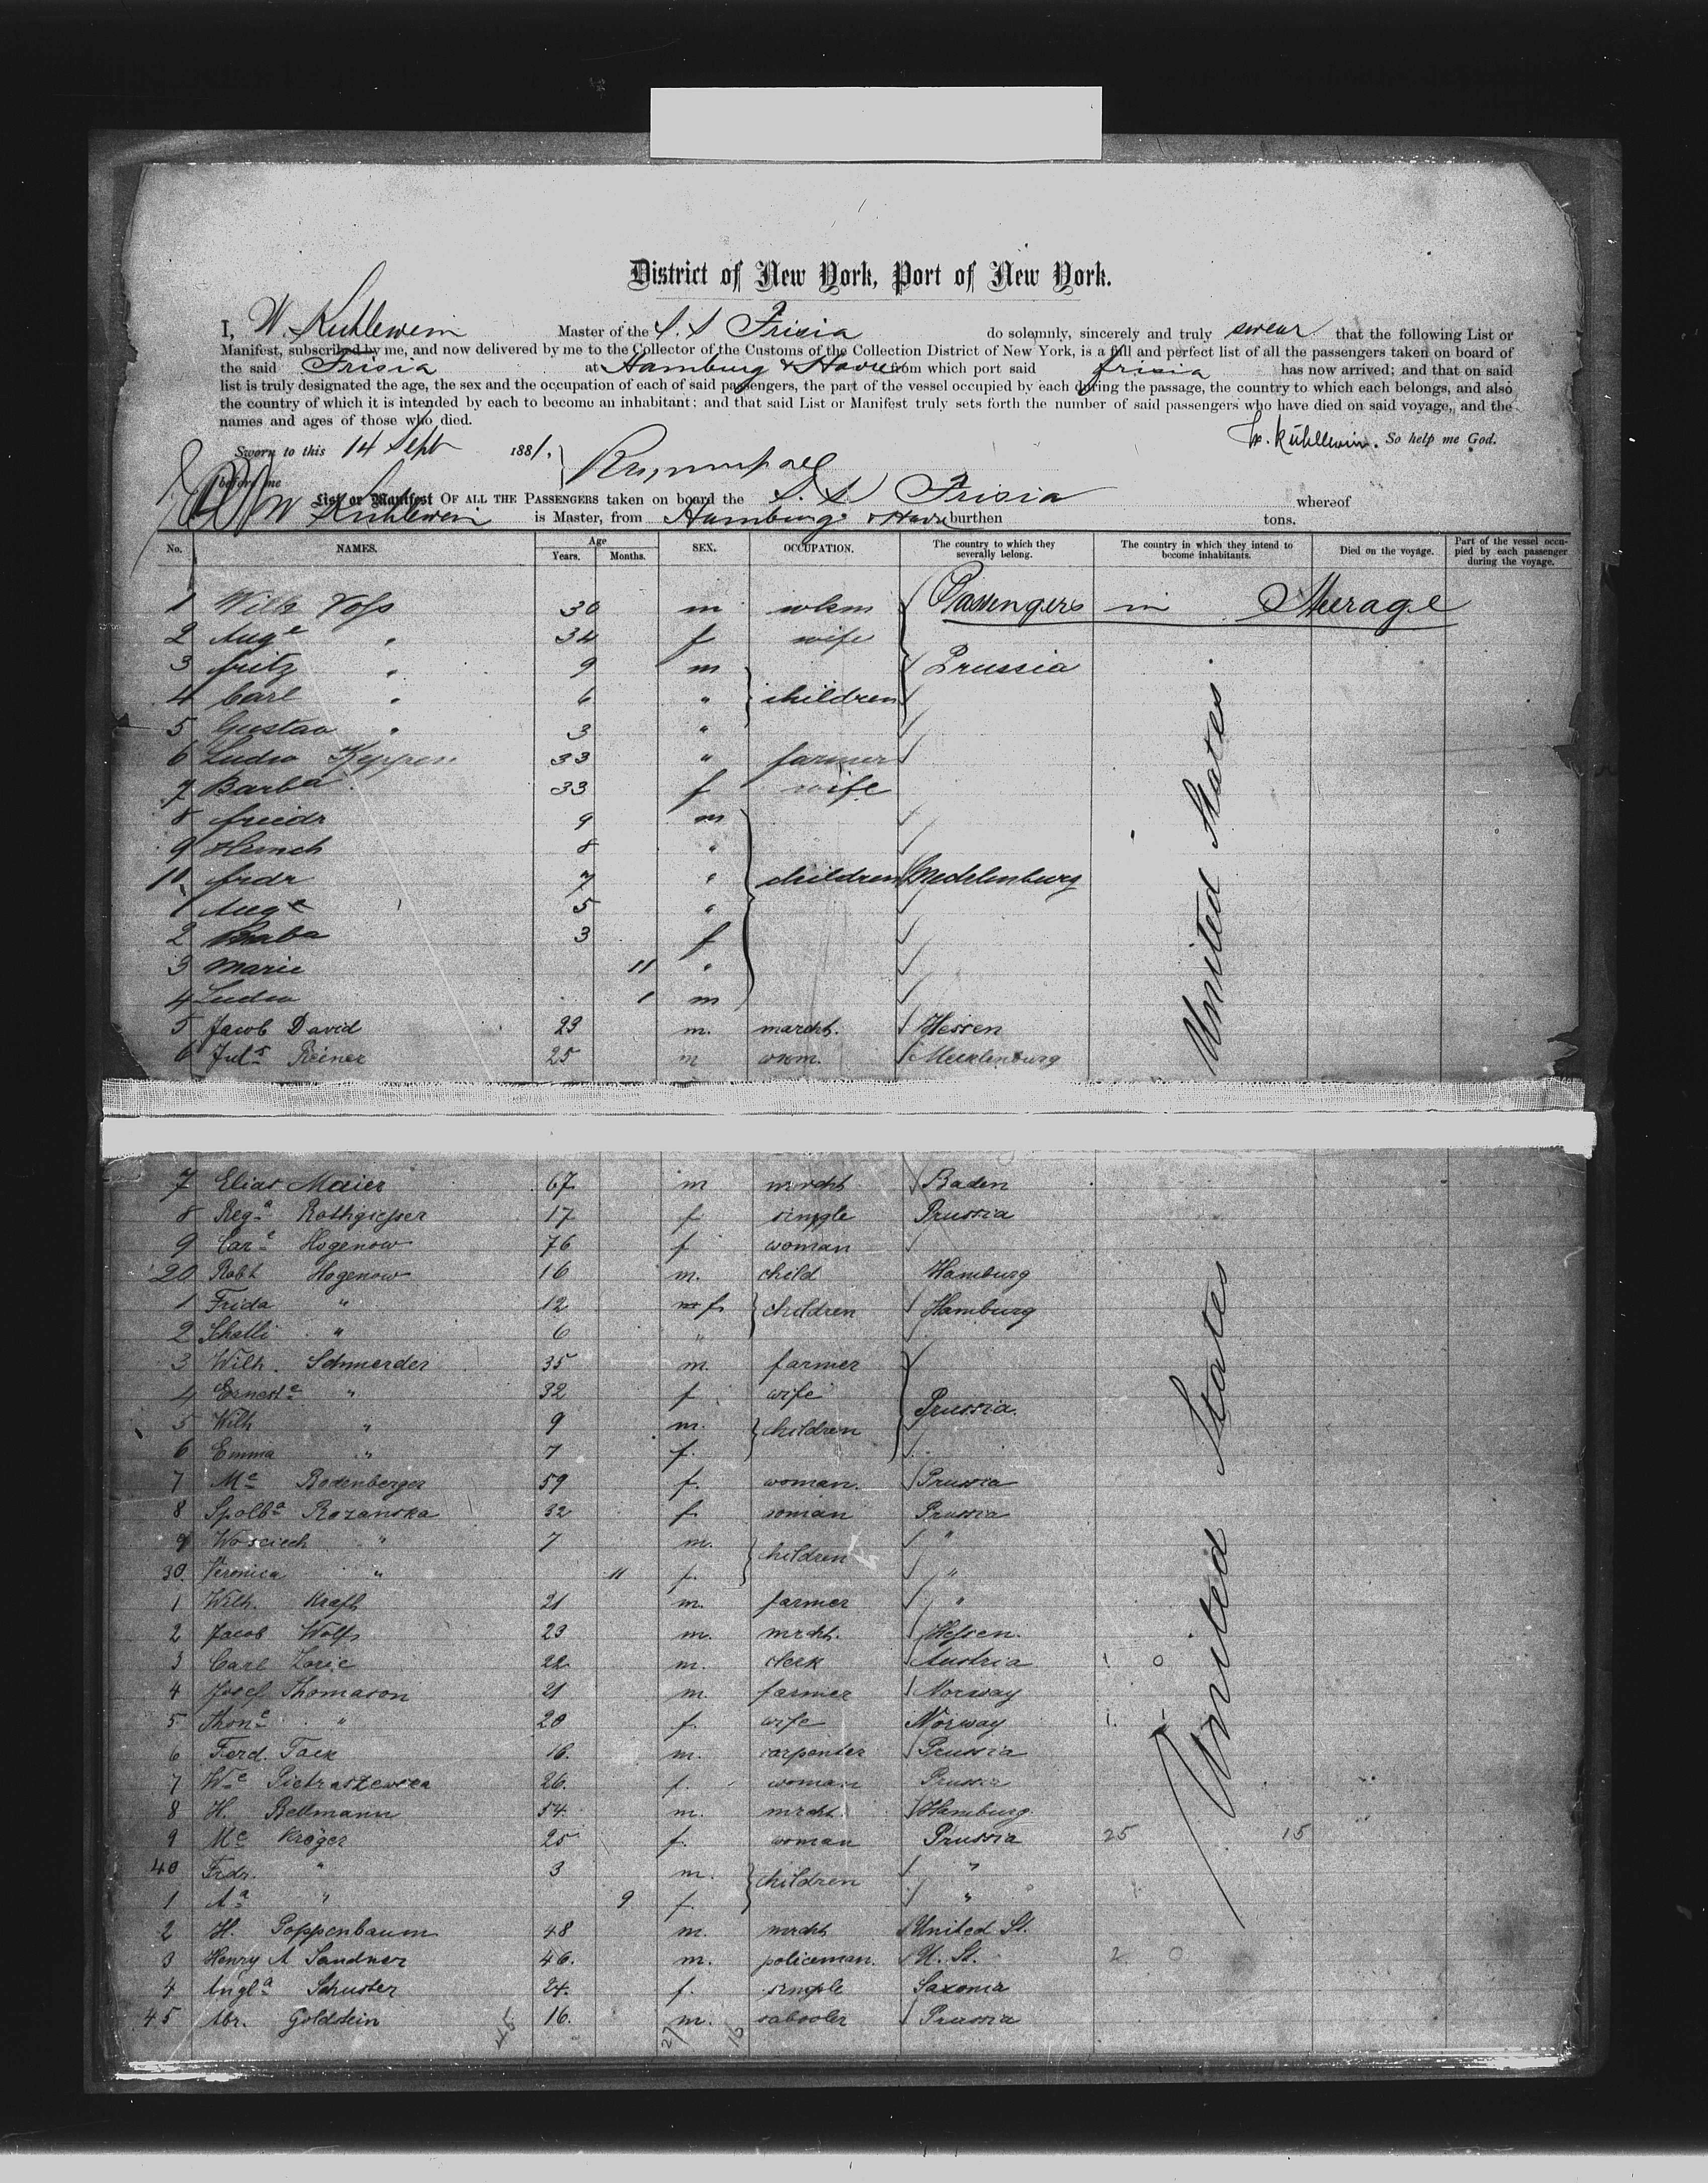 District of New York, Port of New York.
I, W. Kuhlewein Master of the S. S Frisia do solemnly, sincerely and truly swear that the following List or
Manifest, subscribed by me, and now delivered by me to the Collector of the Customs of the Collection District of New York, is a full and perfect list of all the passengers taken on board of
the said Frisia at Hamburg & Havre from which port said Frisia has now arrived; and that on said
list is truly designated the age, the sex and the occupation of each of said passengers, the part of the vessel occupied by each during the passage, the country to which each belongs, and also
the country of which it is intended by each to become an inhabitant; and that said List or Manifest truly sets forth the number of said passengers who have died on said voyage, and the
names and ages of those who died.
W. Kühlewein. So help me God.
Sworn to this 14 Sept 1881.
before me
List or Manifest OF ALL THE PASSENGERS taken on board the S. S Frisia whereof
W Kuhlewein is Master, from Hamburg & Havre burthen tons.
No. NAMES. Age Years. Months. SEX. OCCUPATION. The country to which they severally belong. The country in which they intend to become inhabitants. Died on the voyage. Part of the vessel occupied by each passenger during the voyage.
Passengers in Steerage
1 Wilh Voſs 36 m wkm
2 Auge " 34 f wife
3 Fritz " 9 m Prussia
4 Carl " 6 " children
5 Gustav " 3 "
6 Ludw Keppen 33 " farmer
7 Barba 33 f wife
8 Friedr 9 m
9 Heinch 8 "
10 Frdr 7 " children Mecklenburg
1 Auge 5 "
2 Barba 3 f
3 Marie 11 "
4 Ludw 1 m
5 Jacob David 23 m. marcht. Hessen
6 Juls Reiner 25 m wkm. Mecklenburg
United States.
7 Elias Maier 67 m mrcht Baden
8 Rega Rothgieſser 17 f single Prussia
9 Care Hogenow 76 f woman
20 Robt Hogenow 16 m. child Hamburg
1 Frida " 12 m f children Hamburg
2 Schatti " 6 "
3 Wilh. Schmerder 35 m. farmer
4 Erneste " 32 f wife Prussia.
5 Wilh " 9 m. children
6 Emma " 7 f.
7 Me Rodenberger 59 f. woman. Prussia
8 Spolba Rozanska 32 f. woman Prussia
9 Wosciech " 7 m. children "
30. Veronica " 11 f. "
1 Wilh. Kraft 21 m. farmer "
2 Jacob Wolf 23 m. mrcht. Heſsen.
3 Carl Zoric 22 m. clerk Austria 1 0
4 Josef Thomason 21 m. farmer Norway
5 Thone " 20 f. wife Norway 1. 1
6 Ferd. Tack 16. m. carpenter Prussia
7 We Pietraszewska 26. f. woman Prussia
8 H. Bellmann 54. m. mrcht. Hamburg.
9 Me Kröger 25 f. woman Prussia 25 15
40 Frdr. " 3 m. children "
1 Aa " 9 f. "
2 H. Poppenbaum 48 m. mrcht United St.
3 Henry A Sandner 46. m. policeman. U. St. 2 0
4 Angla Schuster 24. f. single Saxonia
45 Abr. Goldstein 16. m. Prussia
United States
45 27 18